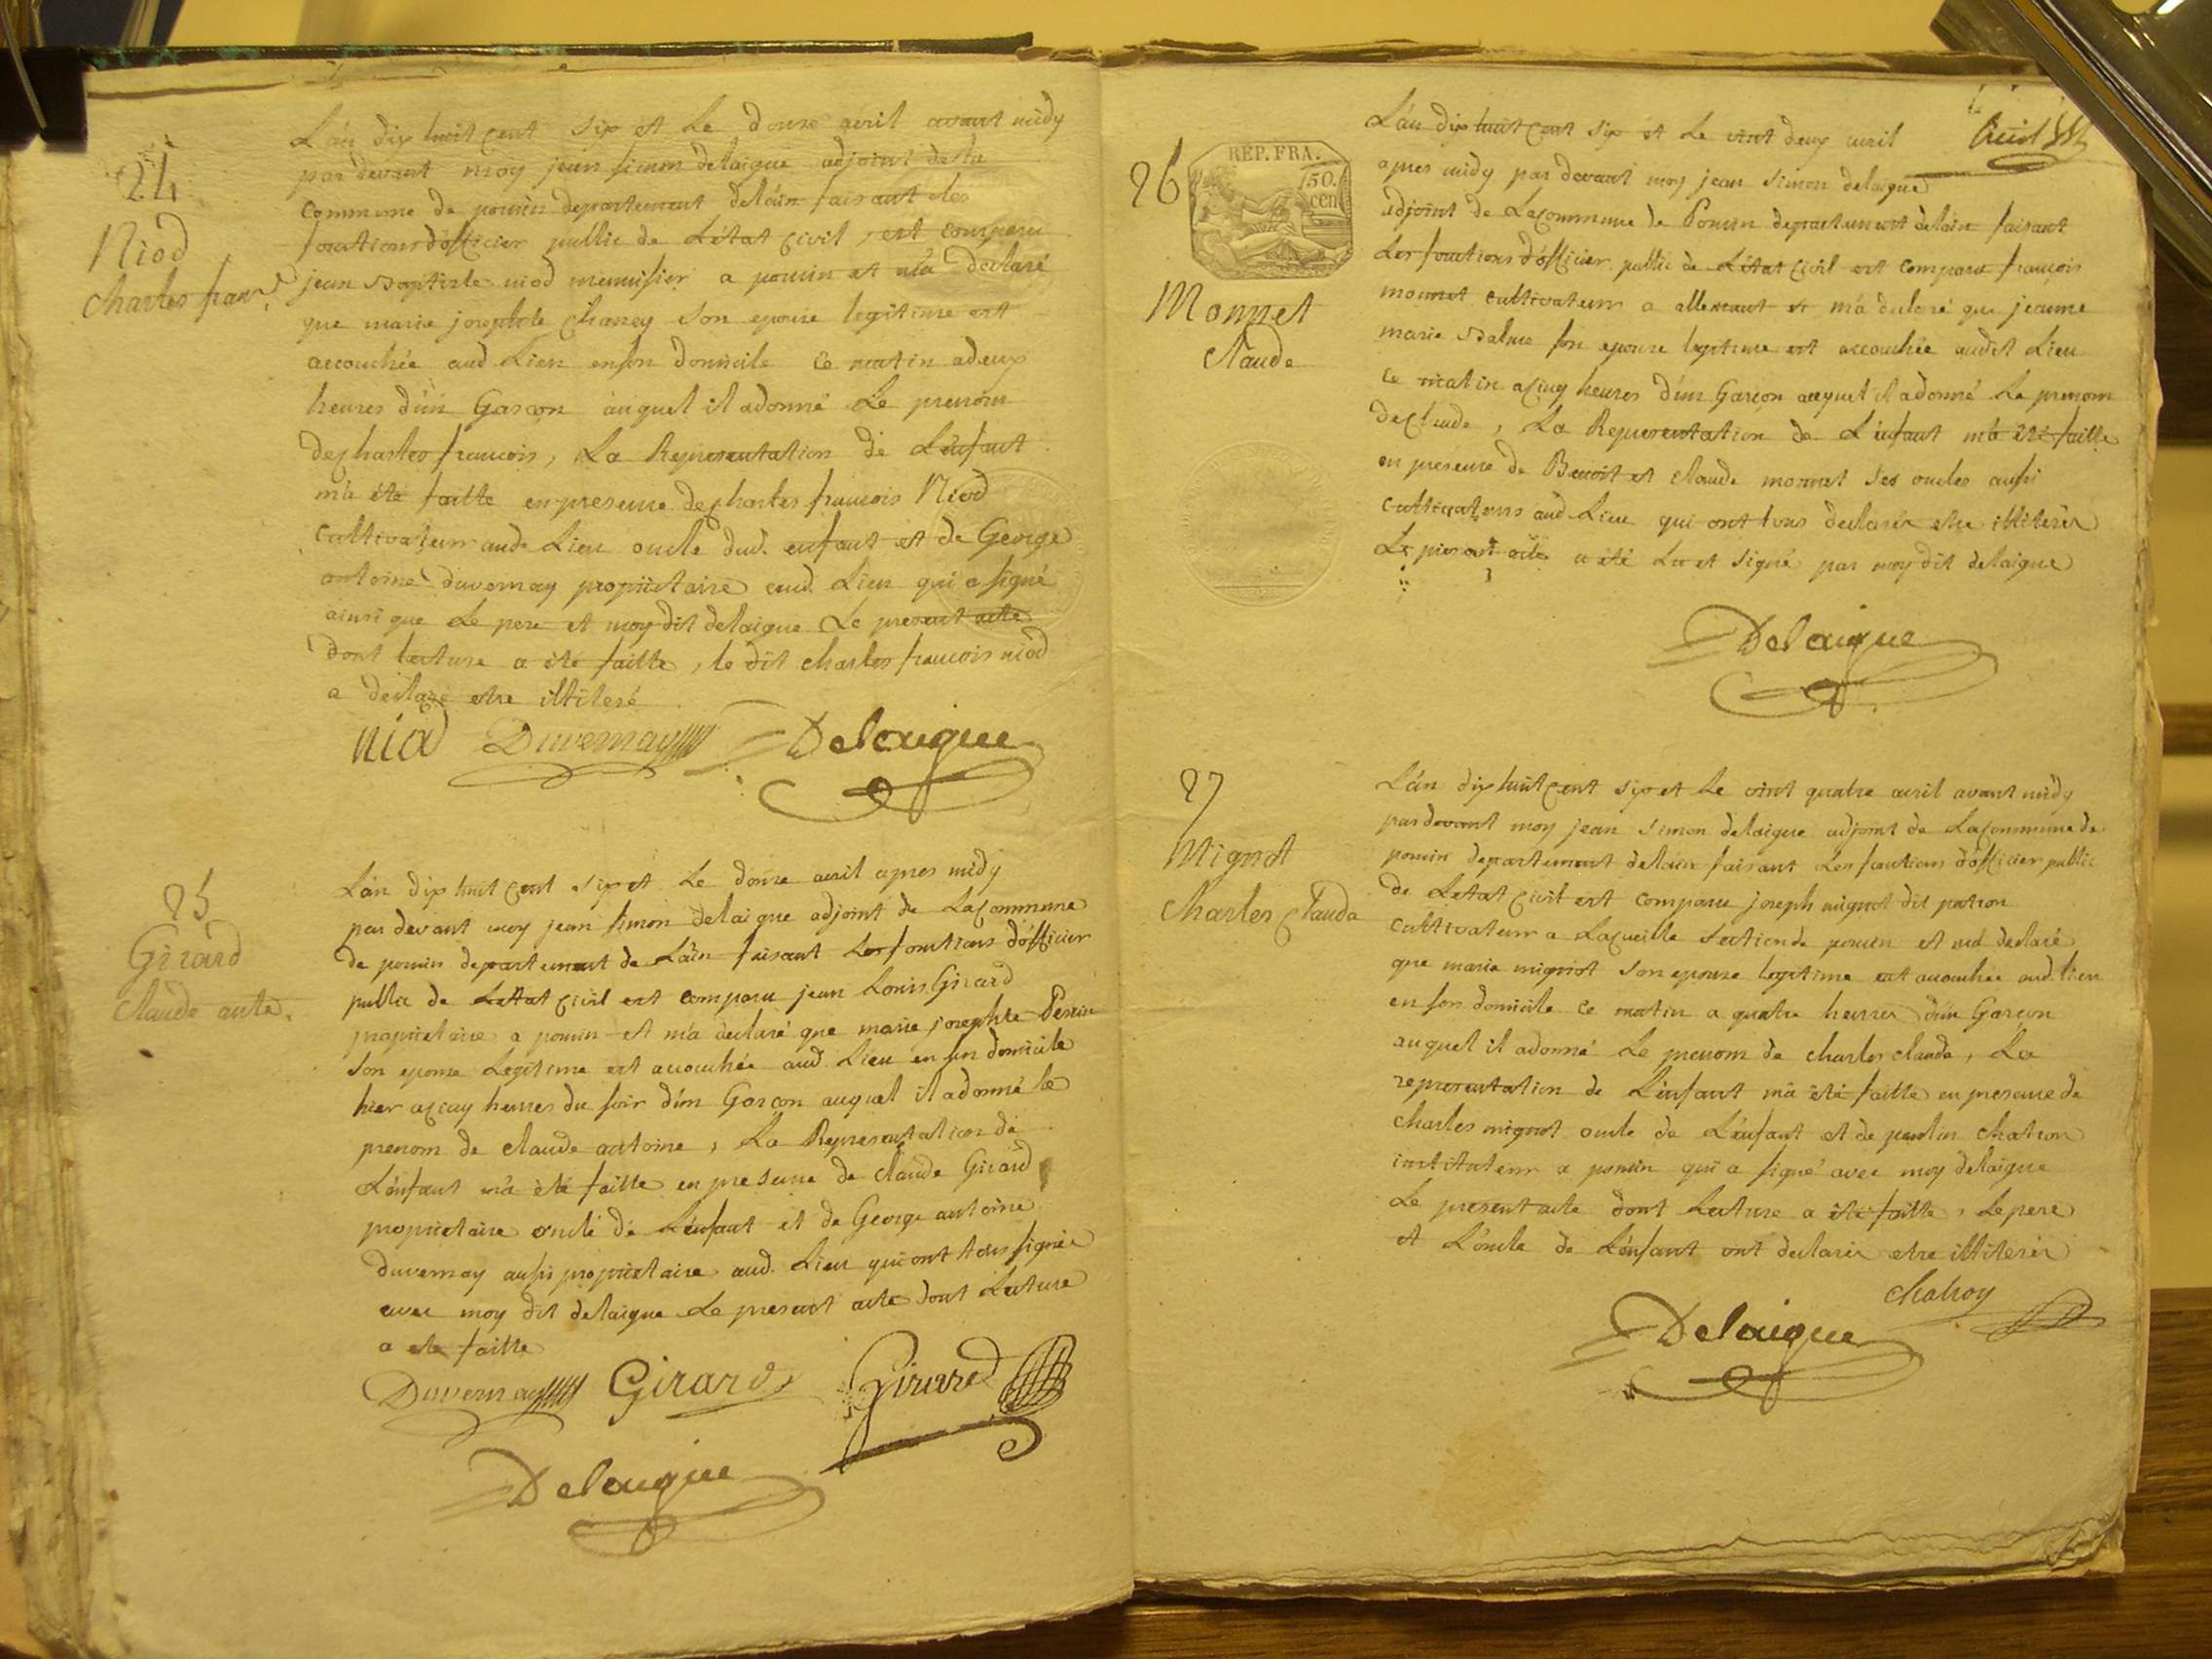 24
Niod
Charles franç.s
L'an dix huit cent six et le douze avril avant midy
par devant moy jean simon delaigue adjoint de la
commune de poncin departement de l'ain faisant les
fonctions d'officier public de L'état Civil, est comparu
jean Baptiste niod menuisier a poncin et m'a declaré
que marie josephte Chaney son epouse legitime est
accouchée aud Lieu en son domicile ce matin a deux
heures d'un Garcon auquel il a donné Le prenom
de charles francois, La Representation de L'enfant
m'a été faitte en presence de charles francois Niod
Cultivateur aud. Lieu oncle dud. enfant et de George
antoine duvernay proprietaire aud. Lieu qui a signé
ainsi que Le pere et moy dit delaigue Le present acte
dont lecture a été faitte, le dit charles francois niod
a declaré etre illiteré
niod Duvernay Delaigue
25
Girard
Claude ante.
L'an dix huit cent six et Le douze avril apres midy
par devant moy jean simon delaigue adjoint de La Commune
de poncin departement de L'ain faisant Les fonctions d'officier
public de Létat Civil est comparu jean Louis Girard
proprietaire a poncin et m'a declaré que marie josephte
son epouse Legitime est accouchée aud. Lieu en son domicile
hier a cinq heures du soir d'un Garcon auquel il a donné le
prenom de claude antoine, La Representation de
L'enfant m'a été faitte en presence de claude Girard
proprietaire oncle de L'enfant et de George antoine
duvernay aussi proprietaire aud. Lieu qui ont tous signé
avec moy dit delaigue Le present acte dont Lecture
a ete faitte
Duvernay Girard Girard
Delaigue
REP. FRA.
50.
cen
26
Monnet
Claude
L'an dix huit cent six et Le vint deux avril
apres midy par devant moy jean simon delaigue
adjoint de La commune de Poncin departement de lain faisant
Les fonctions d'officier public de L'état Civil est comparu francois
monnet cultivateur a allemant et m'a declaré que jeanne
marie Balme son epouse legitime est accouchée audit Lieu
ce matin a cinq heures d'un Garcon auquel il a donné Le prenom
de Claude, La Representation de L'enfant m'a été faitte
en presence de Benoit et claude monnet ses oncles aussi
cultivateurs aud Lieu qui ont tous declarés etre illiterés
Le present acte a été Lu et signé par moy dit delaigue
Delaigue
27
Mignot
Charles Claude
L'an dix huit cent six et Le vint quatre avril avant midy
par devant moy jean simon delaigue adjoint de La commune de
poncin departement de l'ain faisant Les fonctions d'officier public
de Letat Civil est comparu joseph mignot dit patron
cultivateur a La section de poncin et m'a declaré
que marie mignot son epouse legitime est accouchée aud. lieu
en son domicile ce matin a quatre heures d'un Garcon
auquel il a donné Le prenom de charles claude, La
representation de L'enfant m'a été faitte en presence de
charles mignot oncle de L'enfant et de paulin chatron
instituteur a poncin qui a signé avec moy delaigue
Le present acte dont Lecture a été faitte, Le pere
et L'oncle de L'enfant ont declarés etre illiterés
Delaigue